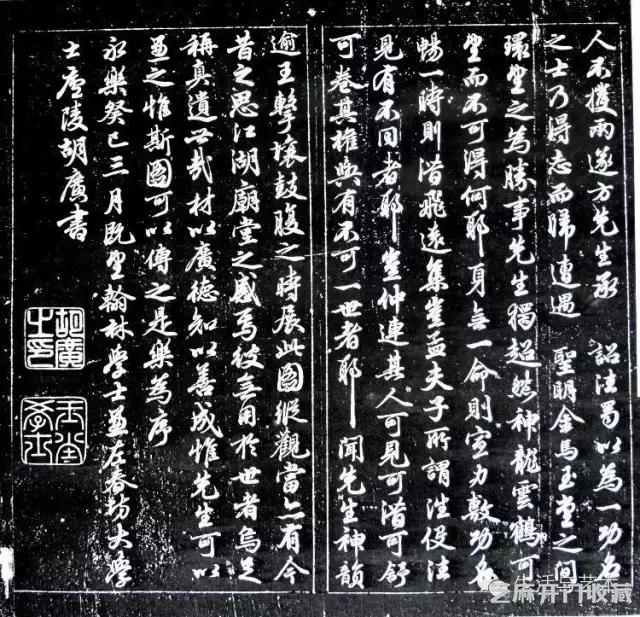 人不獲兩遂方先生承 詔法蜀以為一功名
之士乃得志而歸遭遇 聖明金馬玉堂之間
環望之為勝事先生獨超然神龍雲鶴可
望而不可得何耶身無一命則宣力數功名
暢一時則潛飛遠集豈孟夫子所謂法
見有不同者耶豈仲連其人可見可潛可舒
可卷其權輿有不可一世者耶聞先生神韻
逾王擊壤鼓腹之時展此圖縱觀當亦有今
昔之思江湖廟堂之感焉彼無用於世者烏足
稱真遺世哉材以廣德知以善成惟先生可以
並之惟斯圖可以傳之是樂為序
永樂癸巳三月既望翰林學士兼左春坊大學
士廬陵胡廣書
胡廣之印
玉堂學士
芝麻开门收藏